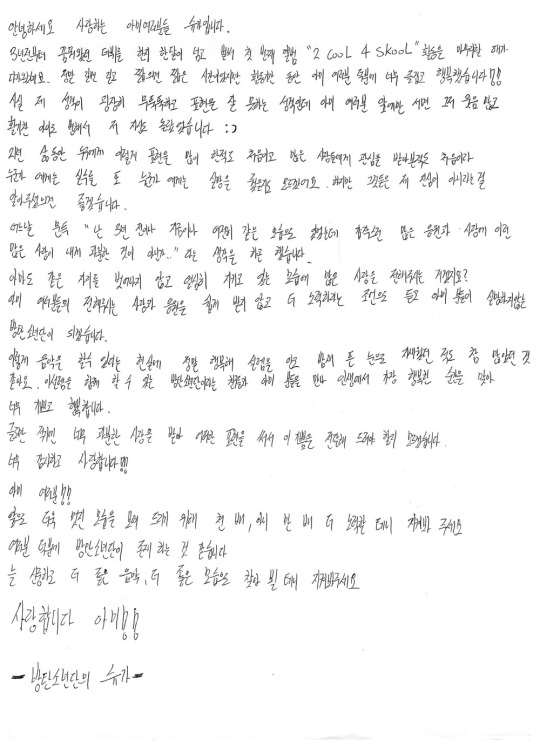 안녕하세요 사랑하는 아미여러분들 슈가입니다.
3년전부터 준비했던 데뷔를 한지 한달이 넘고 벌써 첫 번째 앨범 "2 COOL 4 SKOOL" 활동을 마무리할 때가
다가왔네요. 정말 길면 길고 짧으면 짧은 시간이었지만 활동하는 동안 아미 여러분 덕분에 너무 즐겁고 행복했습니다!!
사실 제 성격이 굉장히 무뚝뚝하고 표현을 잘 못하는 성격인데 아미 여러분 앞에만 서면 그저 웃음 많고
활기찬 아이로 변해서 저 자신도 놀랐었습니다 :)
많은 사람들에게 관심을 받아본적도 처음이라
누군가 에게는 실수를 또 누군가 에게는 실망을 줬을지도 모르겠어요. 하지만 그것들은 제 진심이 아니라는걸
알아주셨으면 좋겠습니다.
어느날 문득 "난 5년 전이나 지금이나 여전히 같은 모습으로 많은 응원과 사랑에 이런
많은 사랑이 내게 과분한 것이 아닌가.." 라는 생각을 하곤 했습니다.
아마도 같은 자리를 벗어나지 않고 열심히 지키고 있는 모습에 많은 사랑을 전해주시는 거겠지요?
아미 여러분들이 전해주시는 사랑과 응원을 쉽게 받지 않고 더 노력하라는 조언으로 듣고 아미 분들이 실망하지않는
방탄소년단이 되겠습니다.
이렇게 음악을 할수 있다는 현실에 정말 행복해 설렘을 안고 밤에 뜬 눈으로 지새웠던 적도 참 많았던 것
같아요. 함께 할 수 있는 방탄소년단이라는 팀원들과 아미 분들을 만나 인생에서 가장 행복한 순간을 맞아
너무 기쁘고 행복합니다.
너무 과분한 사랑을 받아 어떠한 표현을 써서 이 기쁨을 전달해 드려야 할지 모르겠습니다.
너무 감사하고 사랑합니다!!!
아미 여러분!!
앞으로 더욱 멋진 모습을 보여 드리기 위해 천 배, 아니 만 배 더 노력할 테니 지켜봐 주세요
여러분 덕분에 방탄소년단이 존재 하는 것 같습니다
늘 성장하고 더 좋은 음악, 더 좋은 모습으로 찾아 뵐 테니 지켜봐주세요
사랑합니다 아미!!
- 방탄소년단의 슈가 -